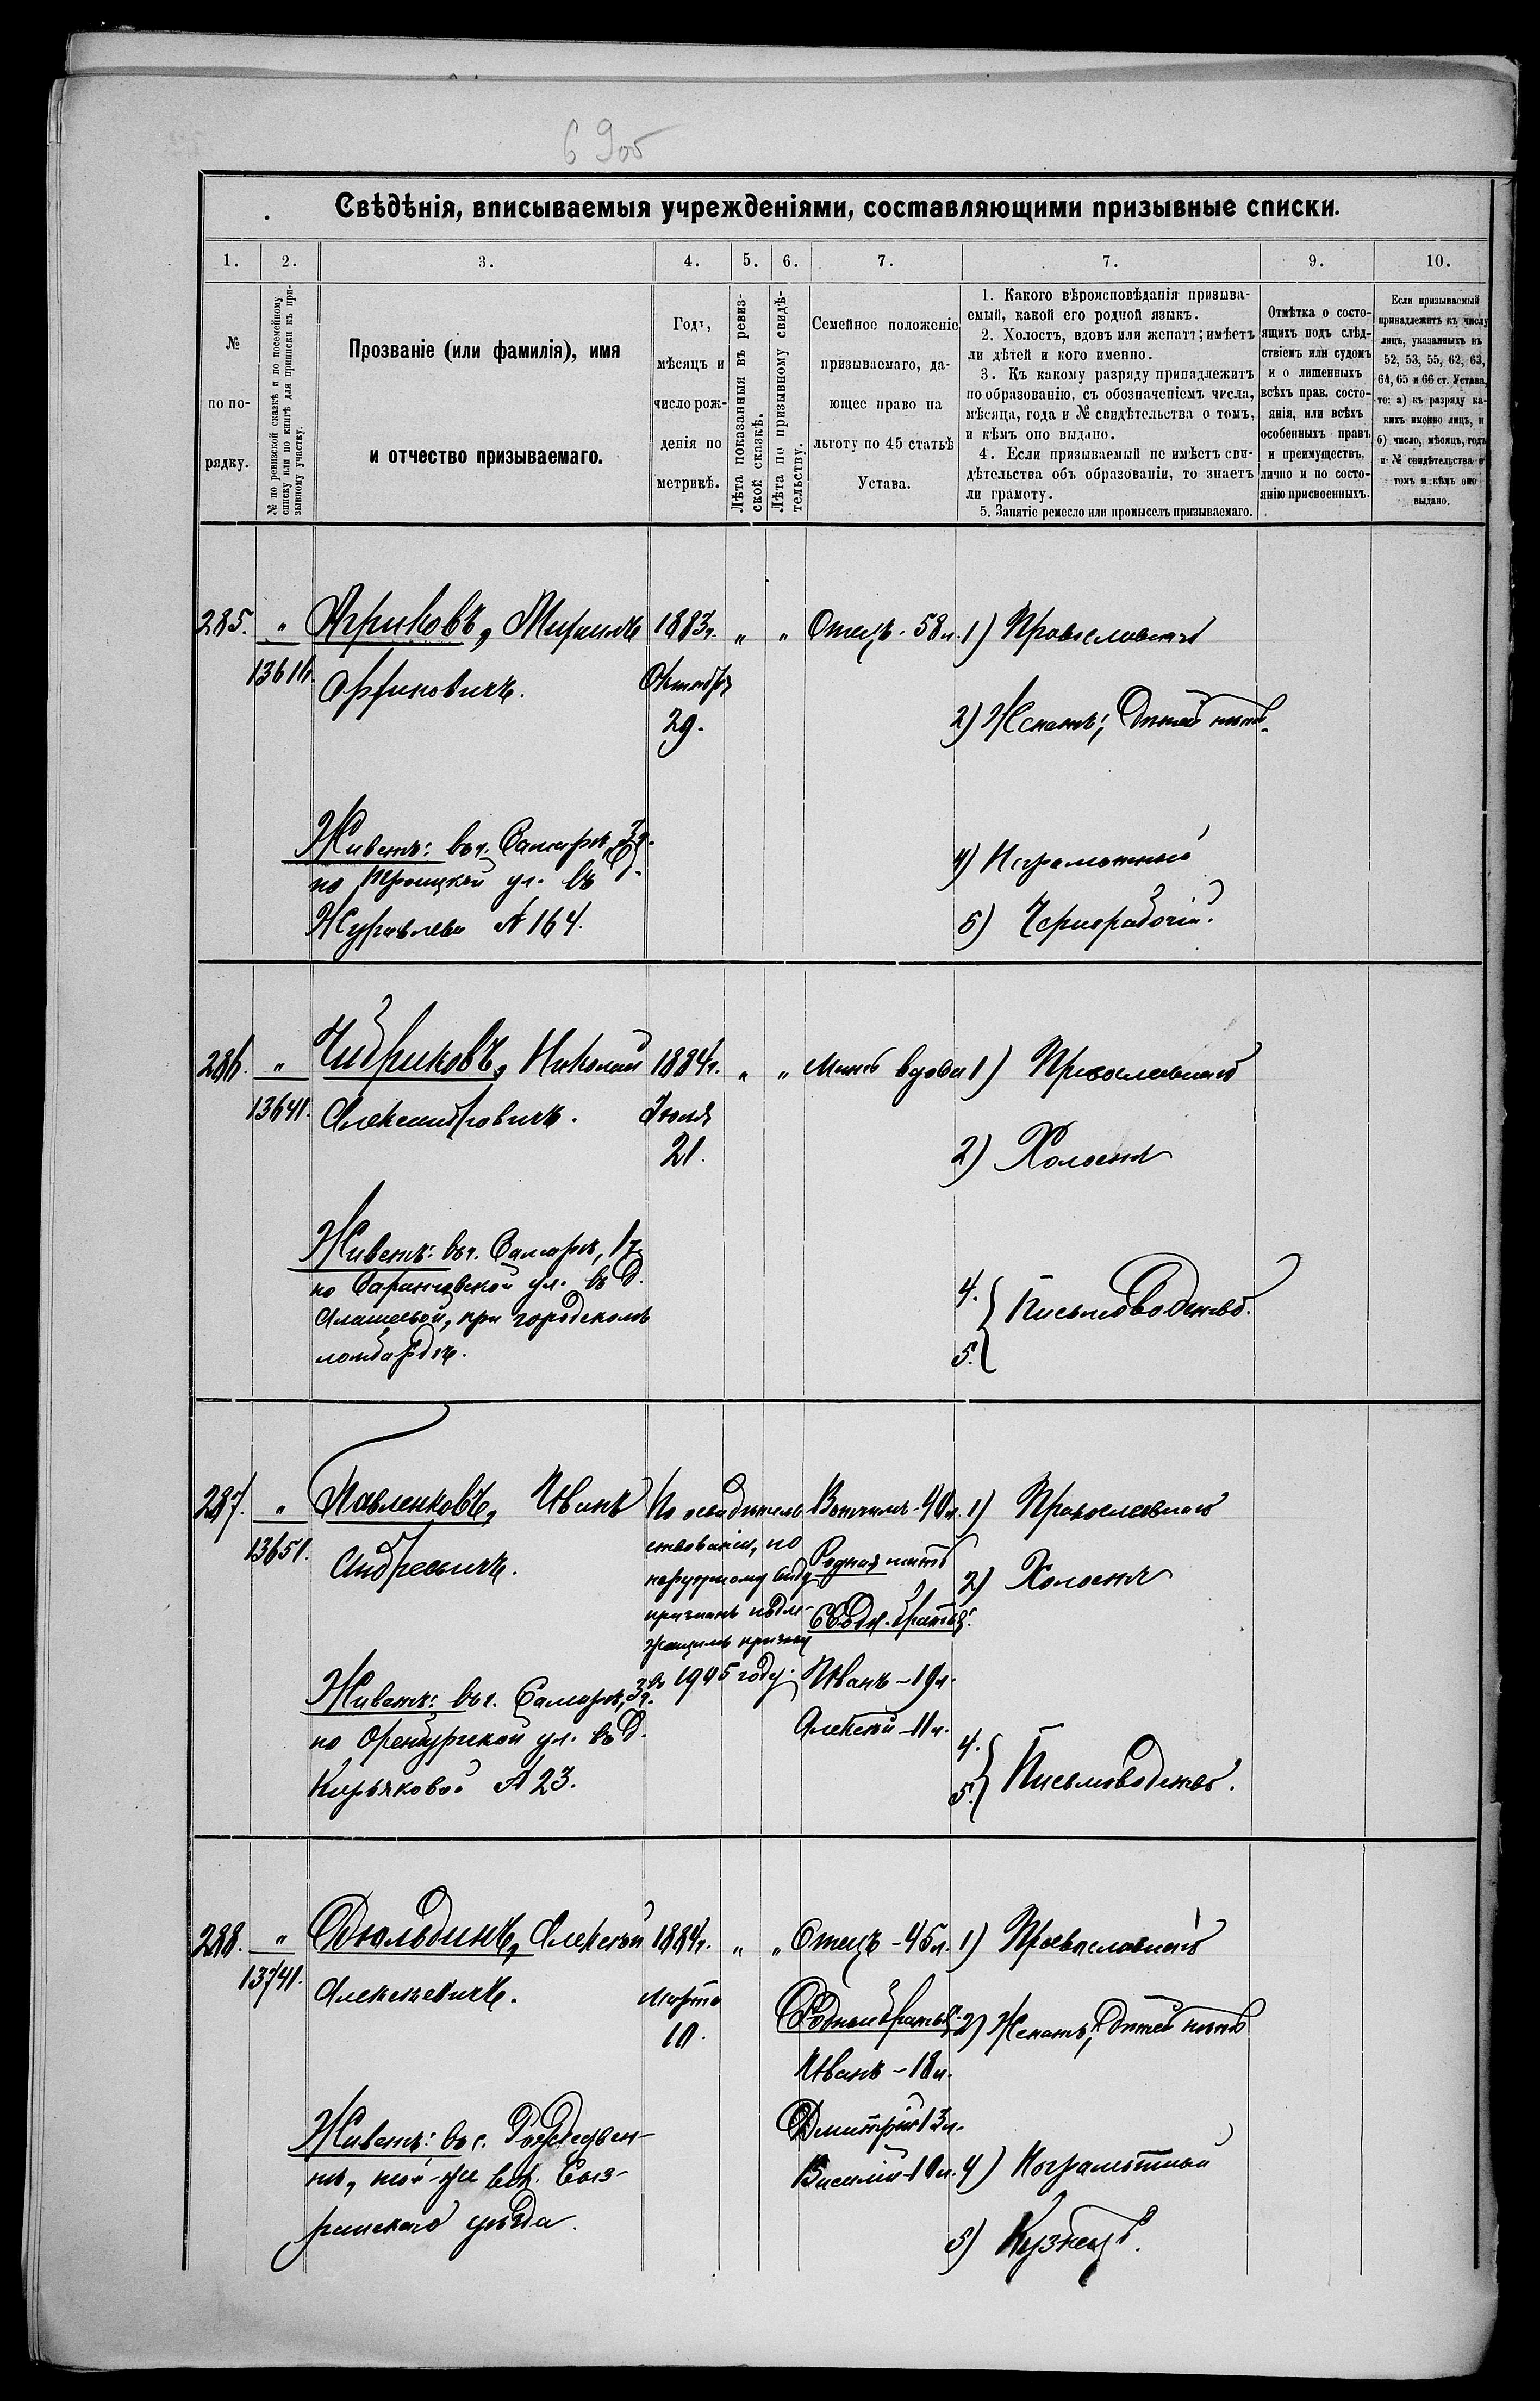 69 об
Свѣдѣнія, вписываемыя учрежденіями, составляющими призывные списки.
1. 2. 3. 4. 5. 6. 7. 7. 9. 10.
№
по по-
рядку.
№ по ревизской сказкѣ и по посемейному
списку или по книгѣ для приписки къ при-
зывному участку.
Прозваніе (или фамилія), имя
и отчество призываемаго.
Годъ,
мѣсяцъ и
число рож-
денія по
метрикѣ.
Лѣта показанныя въ ревиз-
ской сказкѣ.
Лѣта по призывному свидѣ-
тельству.
Семейное положеніе
призываемаго, да-
ющее право на
льготу по 45 статьѣ
Устава.
1. Какого вѣроисповѣданія призыва-
емый, какой его родной языкъ.
2. Холостъ, вдовъ или женатъ; имѣетъ
ли дѣтей и кого именно.
3. Къ какому разряду принадлежитъ
по образованію, съ обозначеніемъ числа,
мѣсяца, года и № свидѣтельства о томъ,
и кѣмъ оно выдано.
4. Если призываемый не имѣетъ сви-
дѣтельства объ образованіи, то знаетъ
ли грамоту.
5. Занятіе ремесло или промыселъ призываемаго.
Отмѣтка о состо-
ящихъ подъ слѣд-
ствіемъ или судомъ
и о лишенныхъ
всѣхъ правъ состо-
янія, или всѣхъ
особенныхъ правъ
и преимуществъ,
лично и по состо-
янію присвоенныхъ.
Если призываемый
принадлежитъ къ числу
лицъ, указанныхъ въ
52, 53, 55, 62, 63,
64, 65 и 66 ст. Устава,
то: а) къ разряду ка-
кихъ именно лицъ, и
б) число, мѣсяцъ, годъ
и № свидѣтельства о
томъ и кѣмъ оно
выдано.
285. " Агриковъ, Михаилъ 1883г. " " Отецъ - 58л. 1) Православный
Октября
29.
2) Женатъ; дѣтей нѣтъ.
Живетъ: въ г. Самарѣ, 3ч.
по Троицкой ул. въ д.
Журавлева № 164.
4) Неграмотный
5) Чернорабочій.
286. " Чибриковъ, Николай 1884г. " " Мать вдова 1) Православный
13641. Александровичъ. Іюля
21.
2) Холостъ
Живетъ: въ г. Самарѣ, 1ч.
по Саратовской ул. въ д.
при городскомъ
ломбардѣ.
4.
5. Письмоводство.
287. " Павленковъ, Иванъ
13651. Андреевичъ.
По освидѣтель-
ствованіи, по
наружному виду
признанъ подле-
жащимъ призыву
въ 1905 году.
Вотчимъ - 40л.
Родная мать
Сводн. братья:
Иванъ - 19л.
Алексѣй - 11л.
1) Православный
2) Холостъ
Живетъ: въ г. Самарѣ, 3ч.
по Оренбургской ул. въ д.
Кирьяковой № 23.
4.
5. Письмоводство.
288. " Сдюльдинъ, Алексѣй 1884г. " " Отецъ - 45л. 1) Православный
13741. Алексѣевичъ. Марта
10.
Родные братья:
Иванъ - 18л.
Дмитрій 13л.
Василій - 10л.
2) Женатъ, дѣтей нѣтъ
Живетъ: въ с. Рождествен-
нѣ, той-же вол. Сыз-
ранскаго уѣзда.
4) Неграмотный
5) Кузнецъ.